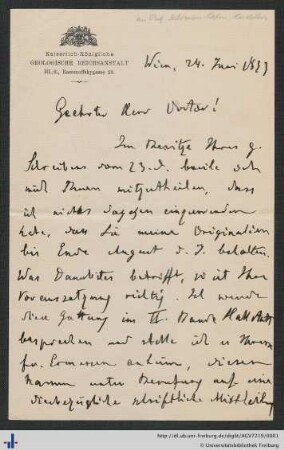 Kaiserlich-Königliche
GEOLOGISCHE REICHSANSTALT
III/2, Rasumoffskygasse 23.
Wien, 24. Juni 1899
Geehrter Herr Doctor!
Im Besitze Ihres g.
Schreibens vom 23. d. beeile ich
mich Ihnen mitzutheilen, dass
ich nichts dagegen einzuwenden
habe, dass Sie meine Originalien
bis Ende August d. J. behalten.
Was Danubites betrifft, so ist Ihre
Voraussetzung richtig. Ich werde
diese Gattung im II. Bande Hallstatt
besprechen und stelle ich es Ihrem
Ermessen anheim, diesen
Namen unter Berufung auf eine
diesbezügliche schriftliche Mittheilung
http://dl.ub.uni-freiburg.de/diglit/ACV7219/0001
Universitätsbibliothek Freiburg